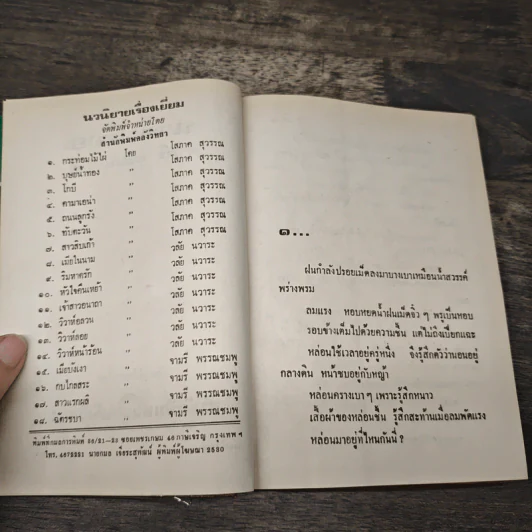 นวนิยายเรื่องเยี่ยม
จัดพิมพ์จำหน่ายโดย
สำนักพิมพ์คลังวิทยา
๑. กระท่อมไม้ไผ่ โดย โสภาค สุวรรณ
๒. บุษย์น้ำทอง " โสภาค สุวรรณ
๓. โกบี " โสภาค สุวรรณ
๔. คามาเอน่า " โสภาค สุวรรณ
๕. ถนนลูกรัง " โสภาค สุวรรณ
๖. ทับตะวัน " โสภาค สุวรรณ
๗. สาวสิบเก้า " วลัย นวาระ
๘. เมียในนาม " วลัย นวาระ
๙. ริมหาดรัก " วลัย นวาระ
๑๐. หัวใจคืนเหย้า " วลัย นวาระ
๑๑. เจ้าสาวอนาถา " วลัย นวาระ
๑๒. วิวาห์อลวน " วลัย นวาระ
๑๓. วิวาห์ลอย " วลัย นวาระ
๑๔. วิวาห์หน้าร้อน " จามรี พรรณชมพู
๑๕. เมียบังเงา " จามรี พรรณชมพู
๑๖. กบไกลสระ " จามรี พรรณชมพู
๑๗. สาวแรกผลิ " จามรี พรรณชมพู
๑๘. ฉัตรชบา " จามรี พรรณชมพู
พิมพ์ที่กมลการพิมพ์ ซอยเพชรเกษม 46 ภาษีเจริญ กรุงเทพ ฯ
โทร. 4673221 นายกมล ผู้พิมพ์ผู้โฆษณา 2530
๑...
ฝนกำลังปรอยเม็ดลงมาบางเบาเหมือนน้ำสวรรค์
พร่างพรม
ลมแรง หอบหยดน้ำฝนเม็ดจิ๋ว ๆ พรูเป็นหอบ
รอบข้างเต็มไปด้วยความชื้น แต่ไม่ถึงเปียกแฉะ
หล่อนใช้เวลาอยู่ครู่หนึ่ง จึงรู้สึกตัวว่านอนอยู่
กลางดิน หน้าซบอยู่กับหญ้า
หล่อนครางเบา ๆ เพราะรู้สึกหนาว
เสื้อผ้าของหล่อนชื้น รู้สึกสะท้านเมื่อลมพัดแรง
หล่อนมาอยู่ที่ไหนกันนี่ ?